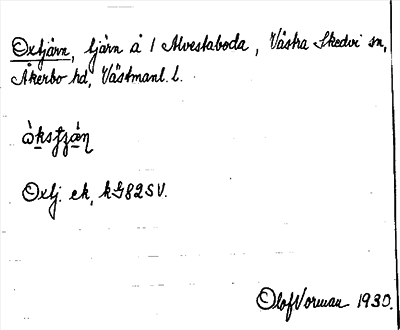 Oxtjärn, tjärn å 1 Alvestaboda, Västra Skedvi sn,
Åkerbo hd, Västmanl. l.
Oxtj. ek, kG82SV.
Olof Vorman 1930.